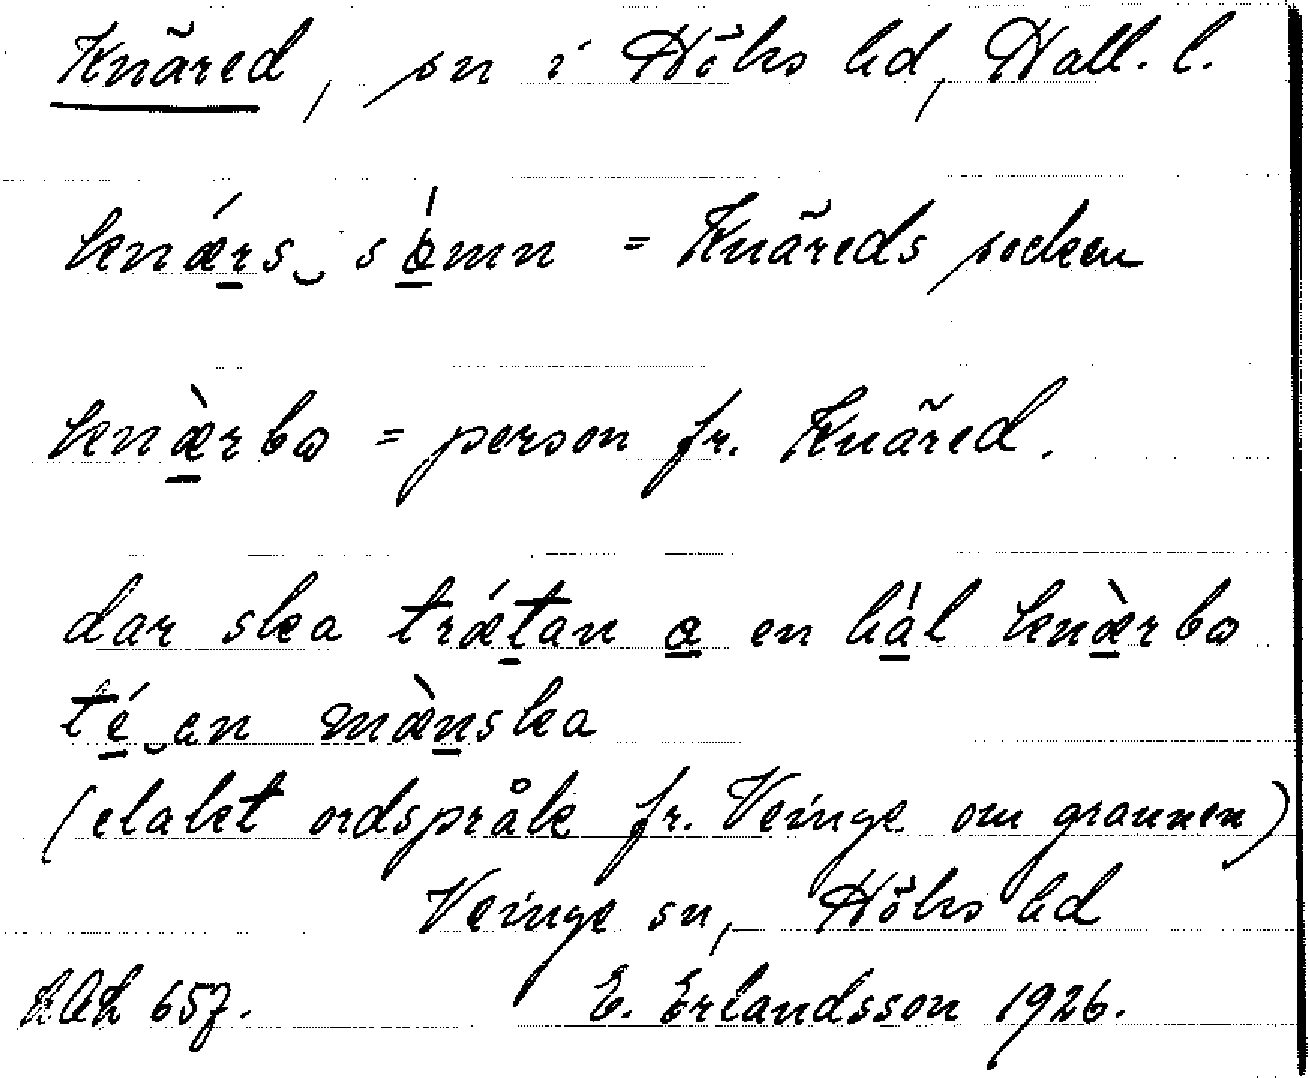 Knäred, sn i Höks hd, Hall. l.
knǽrs‿sòmn = Knäreds socken
knæ̀rbω = person fr. Knäred.
dar ska trǽtan a en hál knæ̀rbω
té‿en mæ̀nska
(elakt ordspråk fr. Veinge om grannen)
Veinge sn, Höks hd
E. Erlandsson 1926.